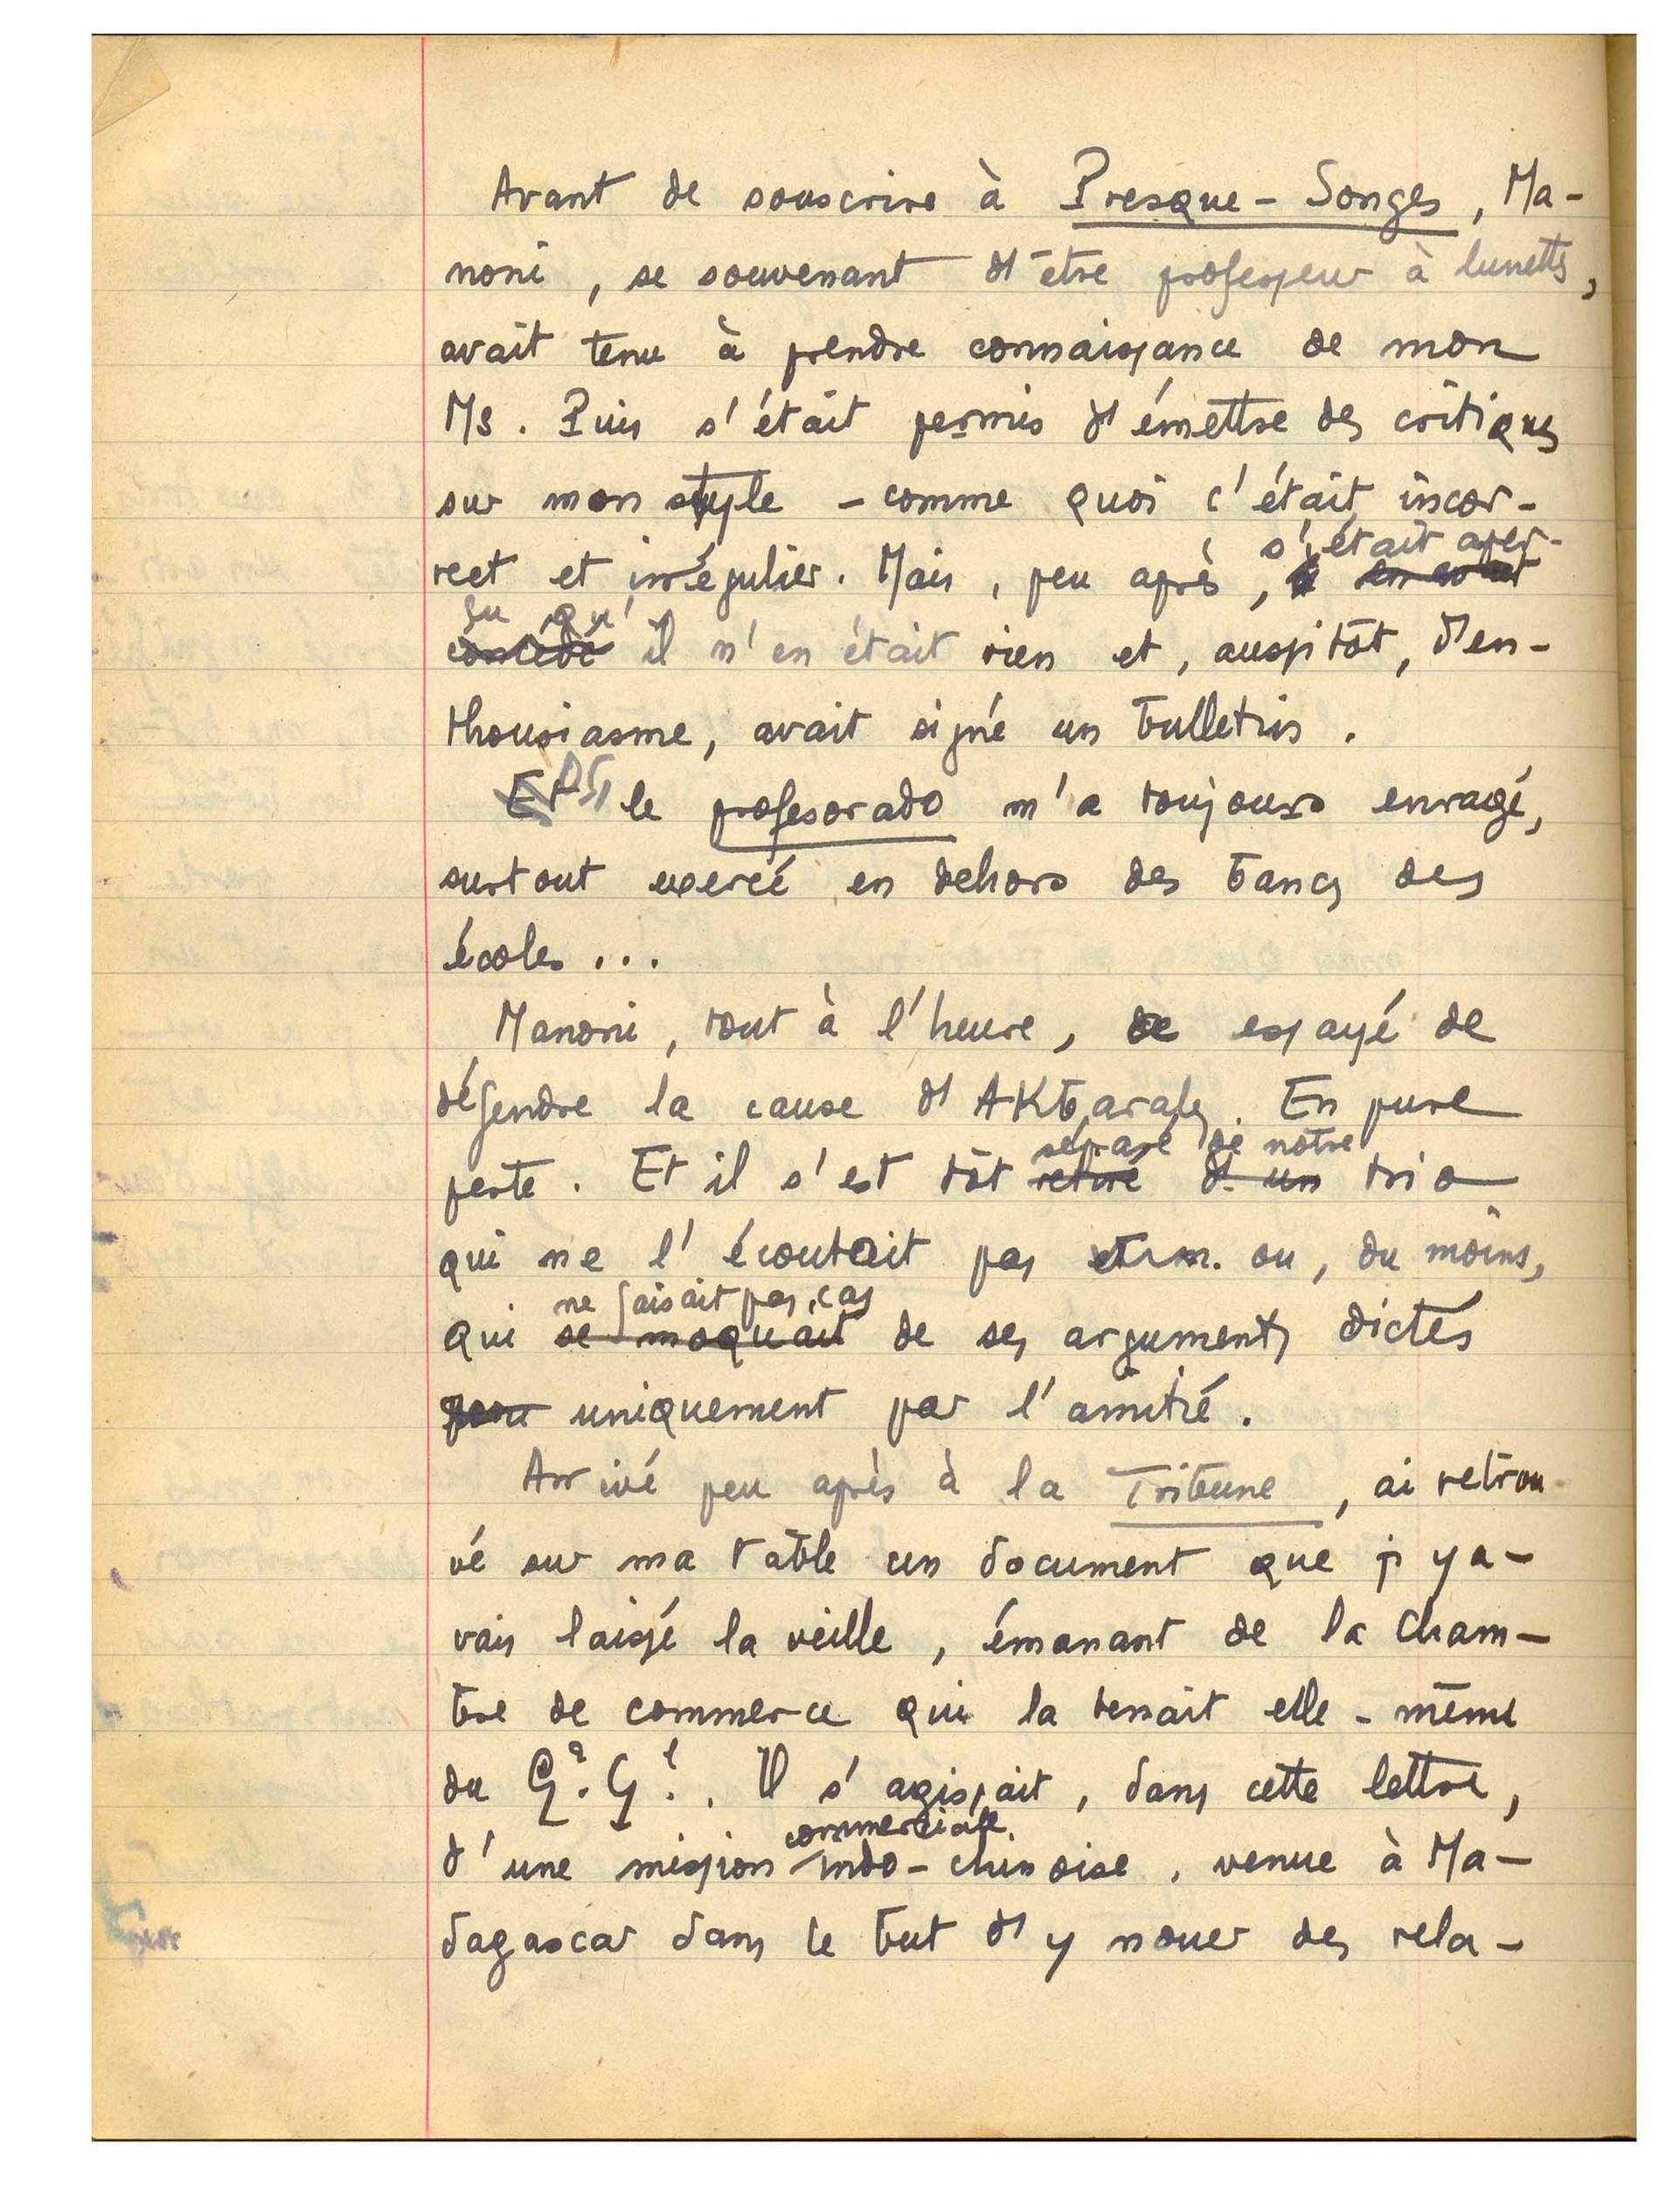 Avant de souscrire à Presque-Songes, Ma-
noni, se souvenant d'être professeur à lunettes,
avait tenu à prendre connaissance de mon
Ms. Puis s'était permis d'émettre des critiques
sur mon style – comme quoi c'était incor-
rect et irrégulier. Mais, peu après,
s'était aper-
çu qu'
il n'en était rien et, aussitôt, d'en-
thousiasme, avait signé un bulletin.
le profesorado m'a toujours enragé,
surtout exercé en dehors des bancs des
écoles...
Manoni, tout à l'heure, essayé de
défendre la cause d'Akbaraly. En pure
séparé de notre
perte. Et il s'est tôt retiré d'un trio
qui ne l'écoutait pas ou, du moins,
ne faisait pas cas
qui se moquait de ses arguments dictés
uniquement par l'amitié.
Arrivé peu après à la Tribune, ai retrou-
vé sur ma table un document que j'y a-
vais laissé la veille, émanant de la Cham-
bre de commerce qui la tenait elle-même
du Gt. Gl. Il s'agissait, dans cette lettre,
commerciale
d'une mission indo-chinoise, venue à Ma-
dagascar dans le but d'y nouer des rela-